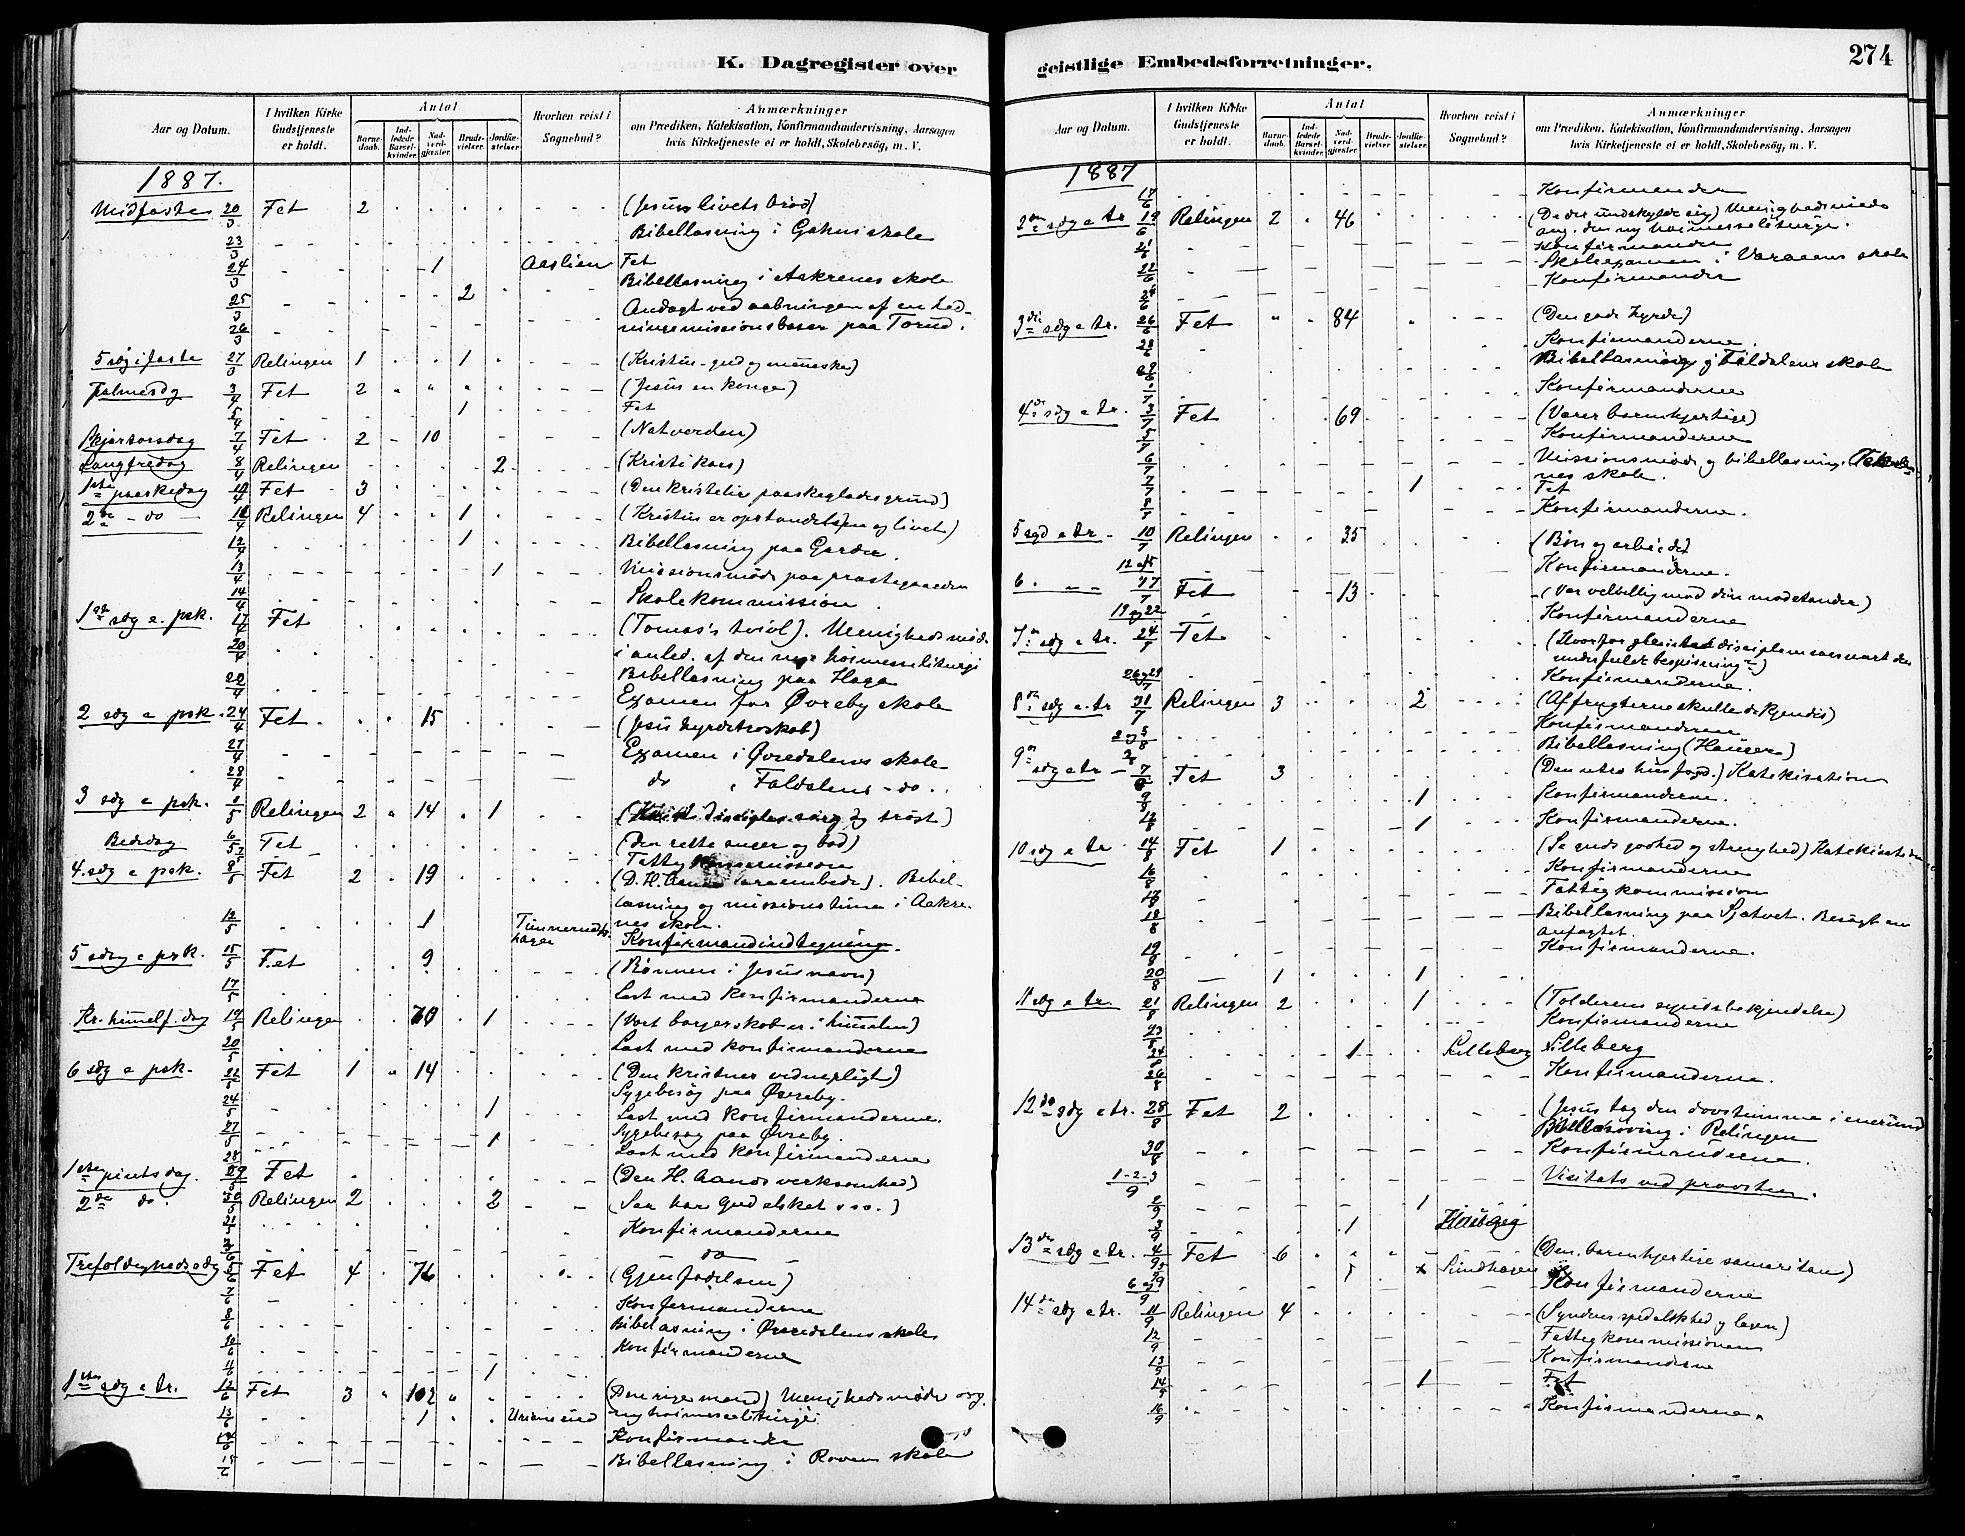 K. Dagregister over
geistlige Embedsforretninger.
274
Aar og Datum.
I hvilken Kirke Gudstjeneste er holdt.
Antal
Barnedaab.
Indledede Barselkvinder.
Nadverdgjester.
Brudevielser.
Jordfæstelser.
Hvorhen reist i Sognebud?
Anmærkninger
om Prædiken, Katekisation, Konfirmandundervisning, Aarsagen
hvis Kirketjeneste ei er holdt, Skolebesøg, m. V.
1887.
Midfaste 20/3 Fet 2 (Jesus livets brød)
23/3 Bibellæsning i Gahns skole
24/3 1 Aaslien Fet
Bibellæsning i Aakrenes skole
25/3 2
26/3 Andagt ved aabningen af en hed-
ningemissionsbasar paa Torud.
5 sdg i faste 27/3 Relingen 1 1 (Kristus - gud og menneske)
Palmesdg 3/4 Fet 2 (Jesus en konge)
5/4 1 Fet
Skjærtorsdag 7/4 Fet 2 10 (Natverden)
Langfredag 8/4 Relingen 2 (Kristi kors)
1ste paaskedag 10/4 Fet 3 (Den kristelige paaskeglædes grund)
2den do 11/4 Relingen 4 1 (Kristus er opstandelsen og livet)
12/4 1 Bibellæsning paa Garder.
13/4 1 Missionsmøde paa præstegaarden
14/4 Skolekommission.
1ste sdg e. psk. 17/4 Fet (Tomas's tvivl). Menighedsmøde
20/4 i anled. af den nye høimesseliturgi
22/4 Bibellæsning paa Haga
Examen for Øvreby skole
2 sdg e psk. 24/4 Fet 15 (Jesu hyrdetroskab)
27/4 Examen i Øvredalens skole
28/4 do i Faldalens - do.
3 sdg e psk. 1/5 Relingen 2 14 1 disciples sorg og trøst)
Bededag 6/5 Fet (Den rette anger og bod)
Fattigkommission
4. sdg e psk. 8/5 Fet 2 19 (D. H. Aands embede). Bibel-
læsning og missionstime i Aakre-
12/5 1 nes skole.
Konfirmandindtegning.
5 sdg e psk. 15/5 Fet 9 (Bønnen i Jesu navn)
17/5 Læst med konfirmanderne
Kr. himmelf. dag 19/5 Relingen 70 1 (Vort borgerskab er i himmelen)
20/5 Læst med konfirmanderne
6 sdg e psk. 22/5 Fet 1 14 (Den kristnes vidnepligt)
Sygebesøg paa Øvreby.
24/5 1 Læst med konfirmanderne.
27/5 1 Sygebesøg paa Øvreby.
28/5 Læst med konfirmanderne
1ste pintsdag. 29/5 Fet (Den H. Aands verksomhed)
2den do 30/5 Relingen 2 2 (Saa har Gud elsket o.s.v.)
31/5 Konfirmanderne
3/6 do
Trefoldighedssdg 5/6 Fet 4 76 (Gjenfødelsen)
7/6 Konfirmanderne
8/6 Bibellæsning i Øvredalens skole
10/6 Konfirmanderne
11/6 1
1ste sdg e tr. 12/6 Fet 3 102 (Den rige mand) Menighedsmøde ang.
13/6 1 ny høimesseliturgi.
14/6 Konfirmander
15/6 Bibellæsning i Roven skole
Aar og Datum.
I hvilken Kirke Gudstjeneste er holdt.
Antal
Barnedaab.
Indledede Barselkvinder.
Nadverdgjester.
Brudevielser.
Jordfæstelser.
Hvorhen reist i Sognebud?
Anmærkninger
om Prædiken, Katekisation, Konfirmandundervisning, Aarsagen
hvis Kirketjeneste ei er holdt, Skolebesøg, m. V.
1887
17/6 Konfirmander
2den sdg e tr 19/6 Relingen 2 46 (De der undskylde sig) Menighedsmøde
ang. den ny høimesseliturgi.
21/6 Konfirmander
22/6 Skoleexamen i Varaaens skole
24/6 Konfirmander
3die sdg e tr. 26/6 Fet 84 (Den gode hyrde)
28/6 Konfirmanderne.
29/6 Bibellæsning i Faldalens skole
1/7 Konfirmanderne
4de sdg e tr. 3/7 Fet 69 (Værer barmhjertige)
5/7 Konfirmanderne
6/7 Missionsmøde og bibellæsning
nes skole.
7/7 1 Fet
8/7 Konfirmanderne.
5 sgd e tr. 10/7 Relingen 35 (Bøn og arbeide)
12 og 15 Konfirmanderne.
6. 17/7 Fet 13 (Vær velvillig mod din modstander)
19 og 22 Konfirmanderne
7de sdg e tr. 24/7 Fet (Hvorfor disciplene saa snart den
underfulde bespisning?)
26 og 29/7 Konfirmanderne.
8de sdg e. tr 31/7 Relingen 3 2 (Af frugterne skulle de kjendes)
2 og 5/8 Konfirmanderne
Bibellæsning (Hauger)
9de sdg e tr 7/8 Fet 3 (Den utro husfogd.) Katekisation
9/8 1 Konfirmanderne.
12/8 1 Konfirmanderne.
10 sdg e tr. 14/8 Fet 1 (Se guds godhed og strenghed) Katekisation
16/8 Konfirmanderne
17/8 Fattigkommission
18/8 Bibellæsning paa Sjatvet. Besøgt en
anfægtet.
19/8 Konfirmanderne.
20/8 1 1
11 sdg e tr. 21/8 Relingen 2 1 (Tolderens syndsbekjendelse)
23/8 Konfirmanderne
24/8 1 Lilleberg Lilleberg
26/8 Konfirmanderne.
12te sdg e tr. 28/8 Fet 2 (Jesus tog den døvstumme i enerum)
Bibellæsning i Relingen
30/8 Konfirmanderne.
1-2-3/9 Visitats ved provsten.
2/9 1
3/9 1
13de sdg e tr. 4/9 Fet 6 (Den barmhjertige samaritan)
Sundhagen
6 og 9/9 Konfirmanderne
14de sdg e tr. 11/9 Relingen 4 (Syndens spedalskhed og lægen)
12/9 Fattigkommissionen
13/9 Konfirmanderne
14/9 1 Fet
16/9 Konfirmanderne.